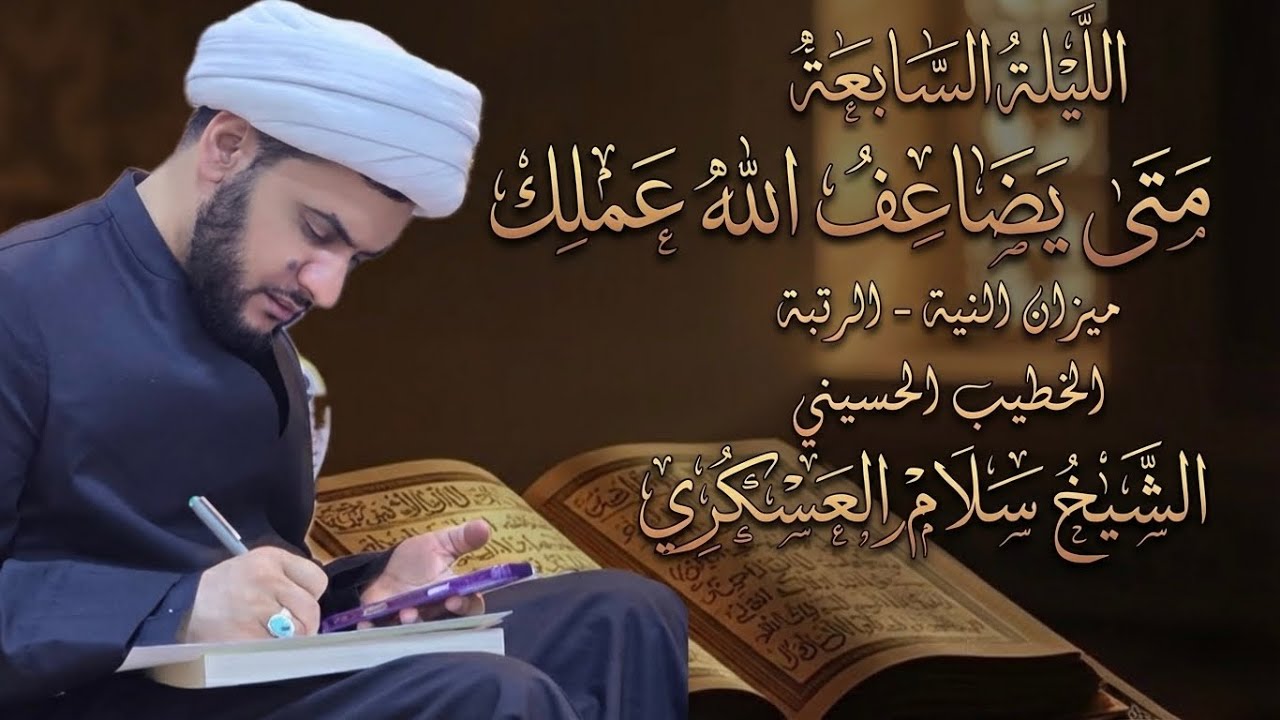 اللَّيْلَةُ السَّابِعَةُ
مَتَى يَضَاعِفُ اللهُ عَمَلِكَ
ميزان النية - الرتبة
الخطيب الحسيني
الشَّيْخُ سَلَامْ العَسْكَرِي